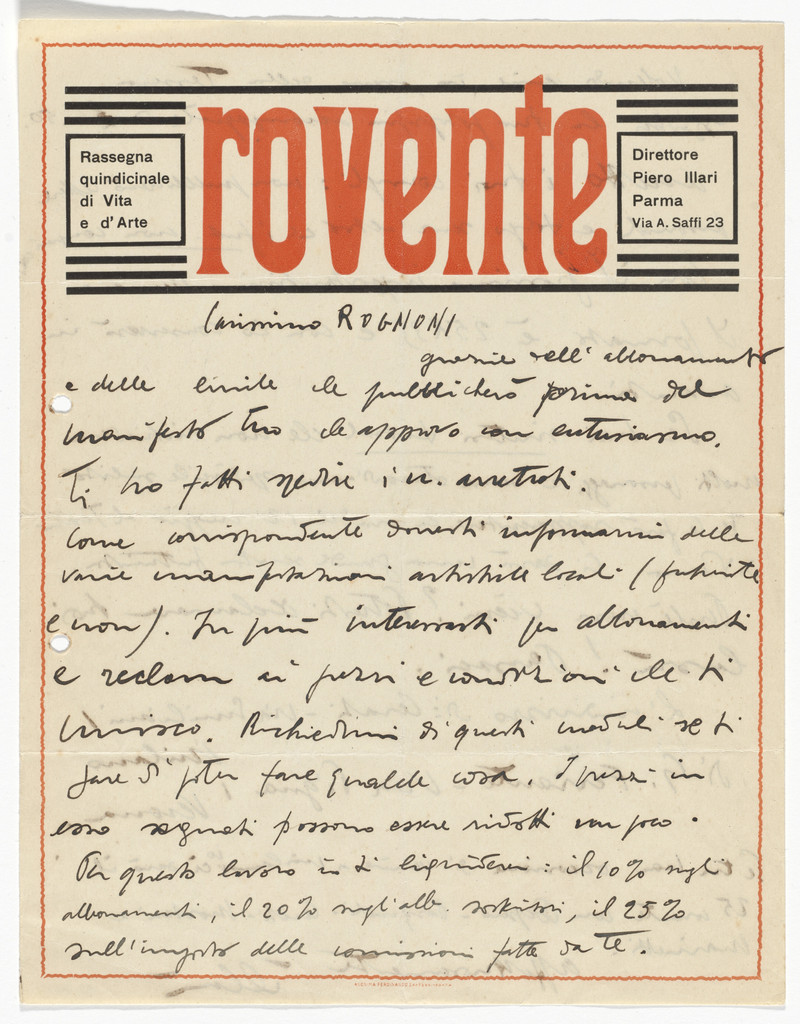 rovente
Rassegna
quindicinale
di Vita
e d'Arte
Direttore
Piero Illari
Parma
Via A. Saffi 23
Carissimo ROGNONI
grazie dell' abbonamento
e delle che pubblicherò prima del
manifesto tuo che approvo con entusiasmo.
Ti ho fatti spedire i n. arretrati.
Come corrispondente dovresti informarmi delle
varie manifestazioni artistiche locali (futuriste
e non). In più interessarti per abbonamenti
e reclam ai prezzi e condizioni che ti
unisco. Richiedimi di questi moduli se ti
pare di poter fare qualche cosa. I prezzi in
essi segnati possono essere ridotti un poco.
Per questo lavoro io ti : il 10% sugli
abbonamenti, il 20% sugli abb. sostenitori, il 25%
sull'importo delle commissioni fatte da te.